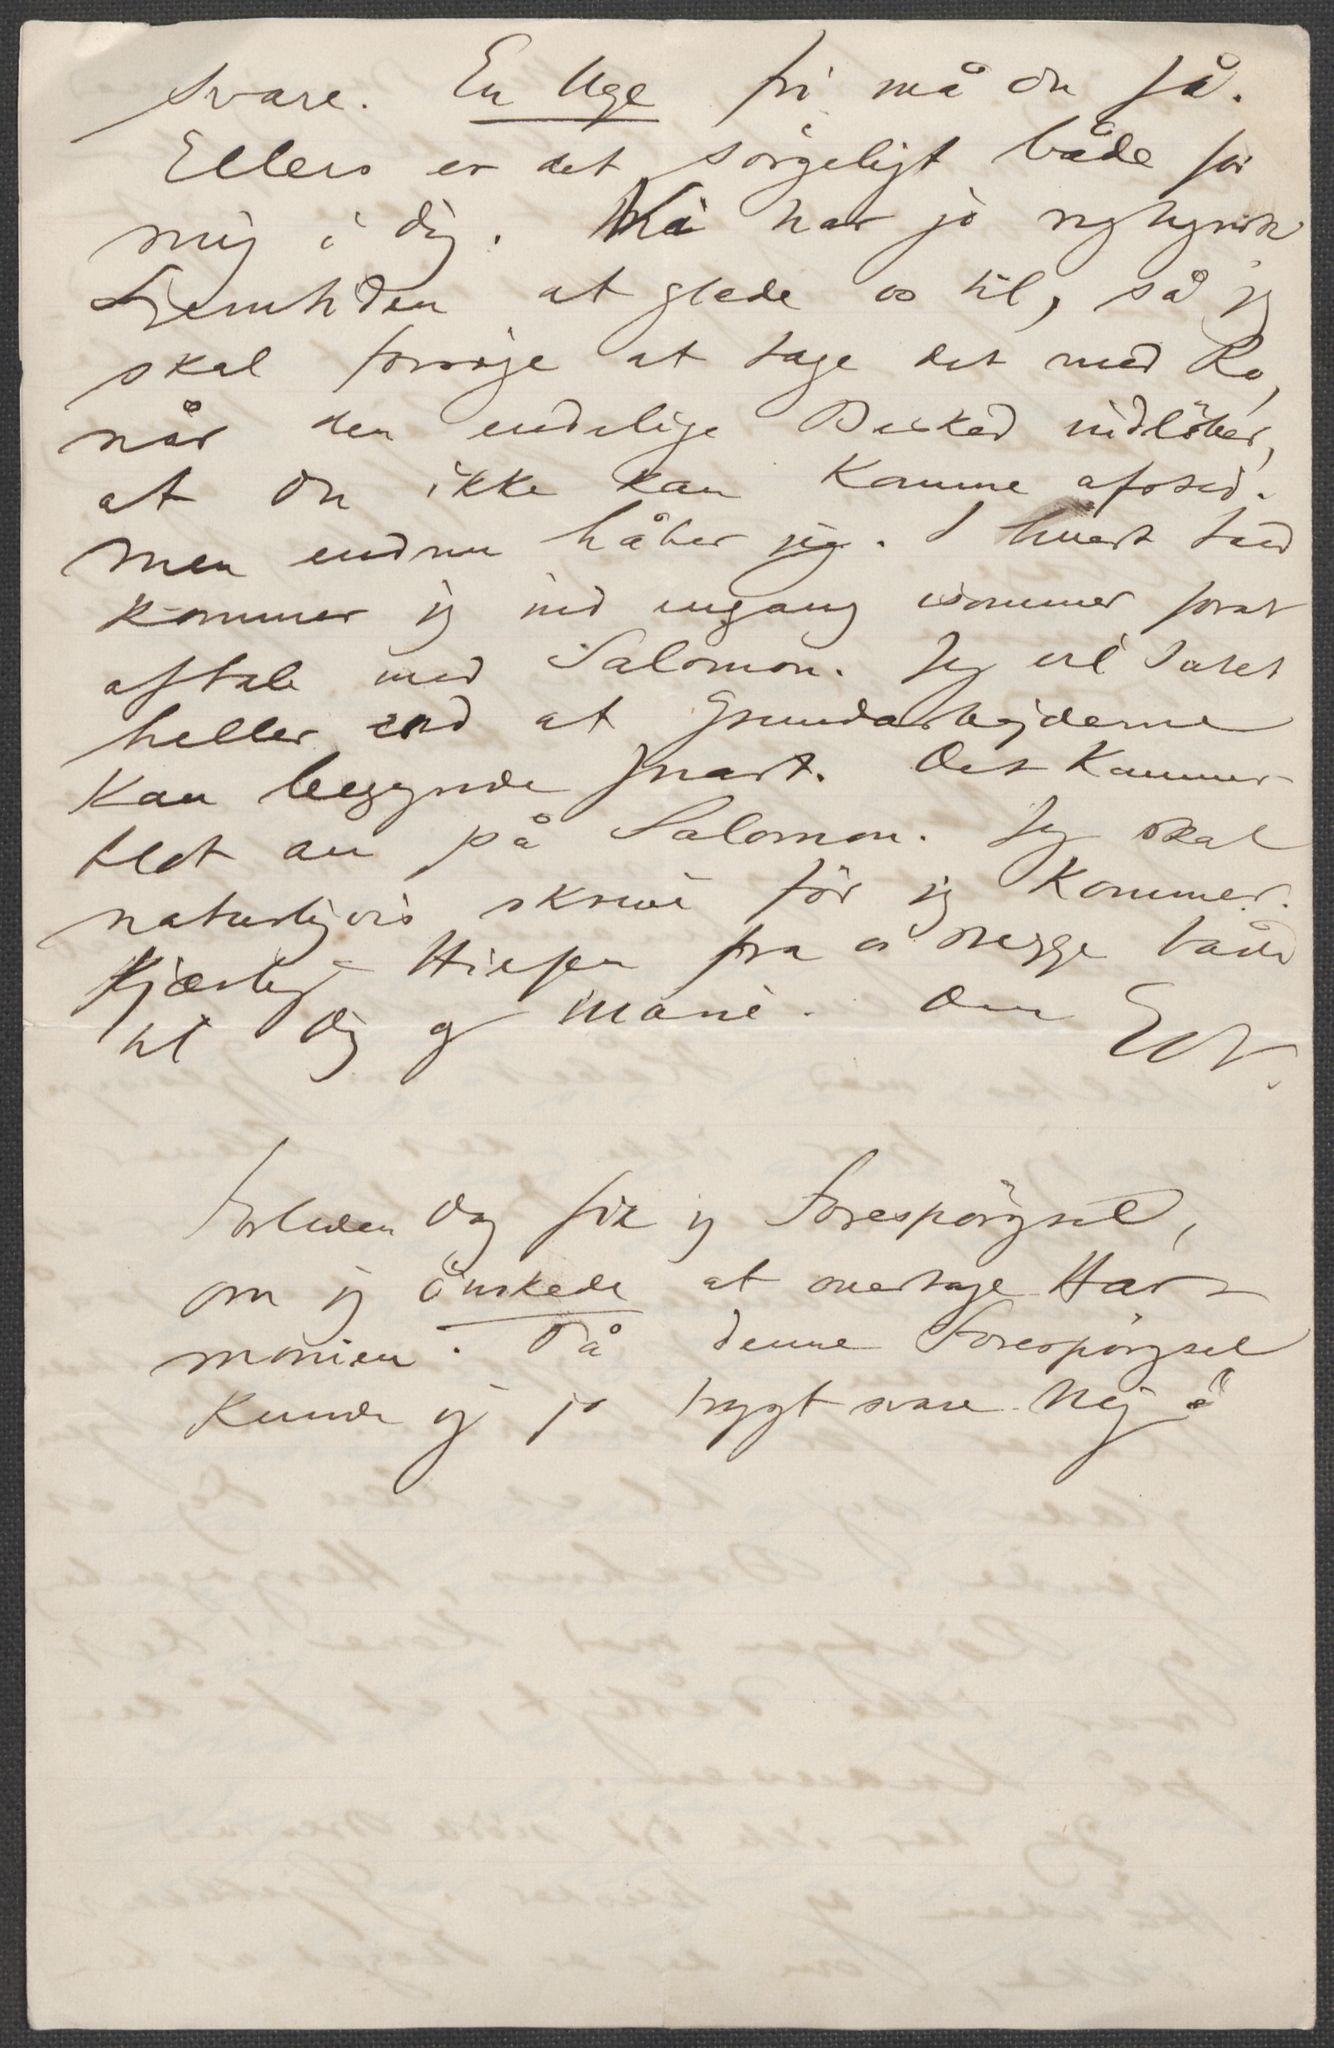 svare. En Uge fri må du få.
Ellers er det sørgeligt både for
mig i dig. Vi har jo
Fremtiden at glæde os til, så jeg
skal forsøge at tage det med Ro,
når den endelige Besked indløber,
at du ikke kan komme afsted.
Men endnu håber jeg. I hvert Fald
kommer jeg ind engang isommer forat
aftale med Salomon. Jeg vil intet
heller end at Grundarbejderne
kan begynde snart. Det kommer
blot an på Salomon. Jeg skal
naturligvis skrive før jeg kommer.
Kjærlig Hilsen fra os begge både
til dig og Marie. Din Edv.
Forleden Dag fik jeg Forespörgsel,
om jeg önskede at overtage Har-
monien. På denne Forespörgsel
kunde jeg jo trygt svare Nej!